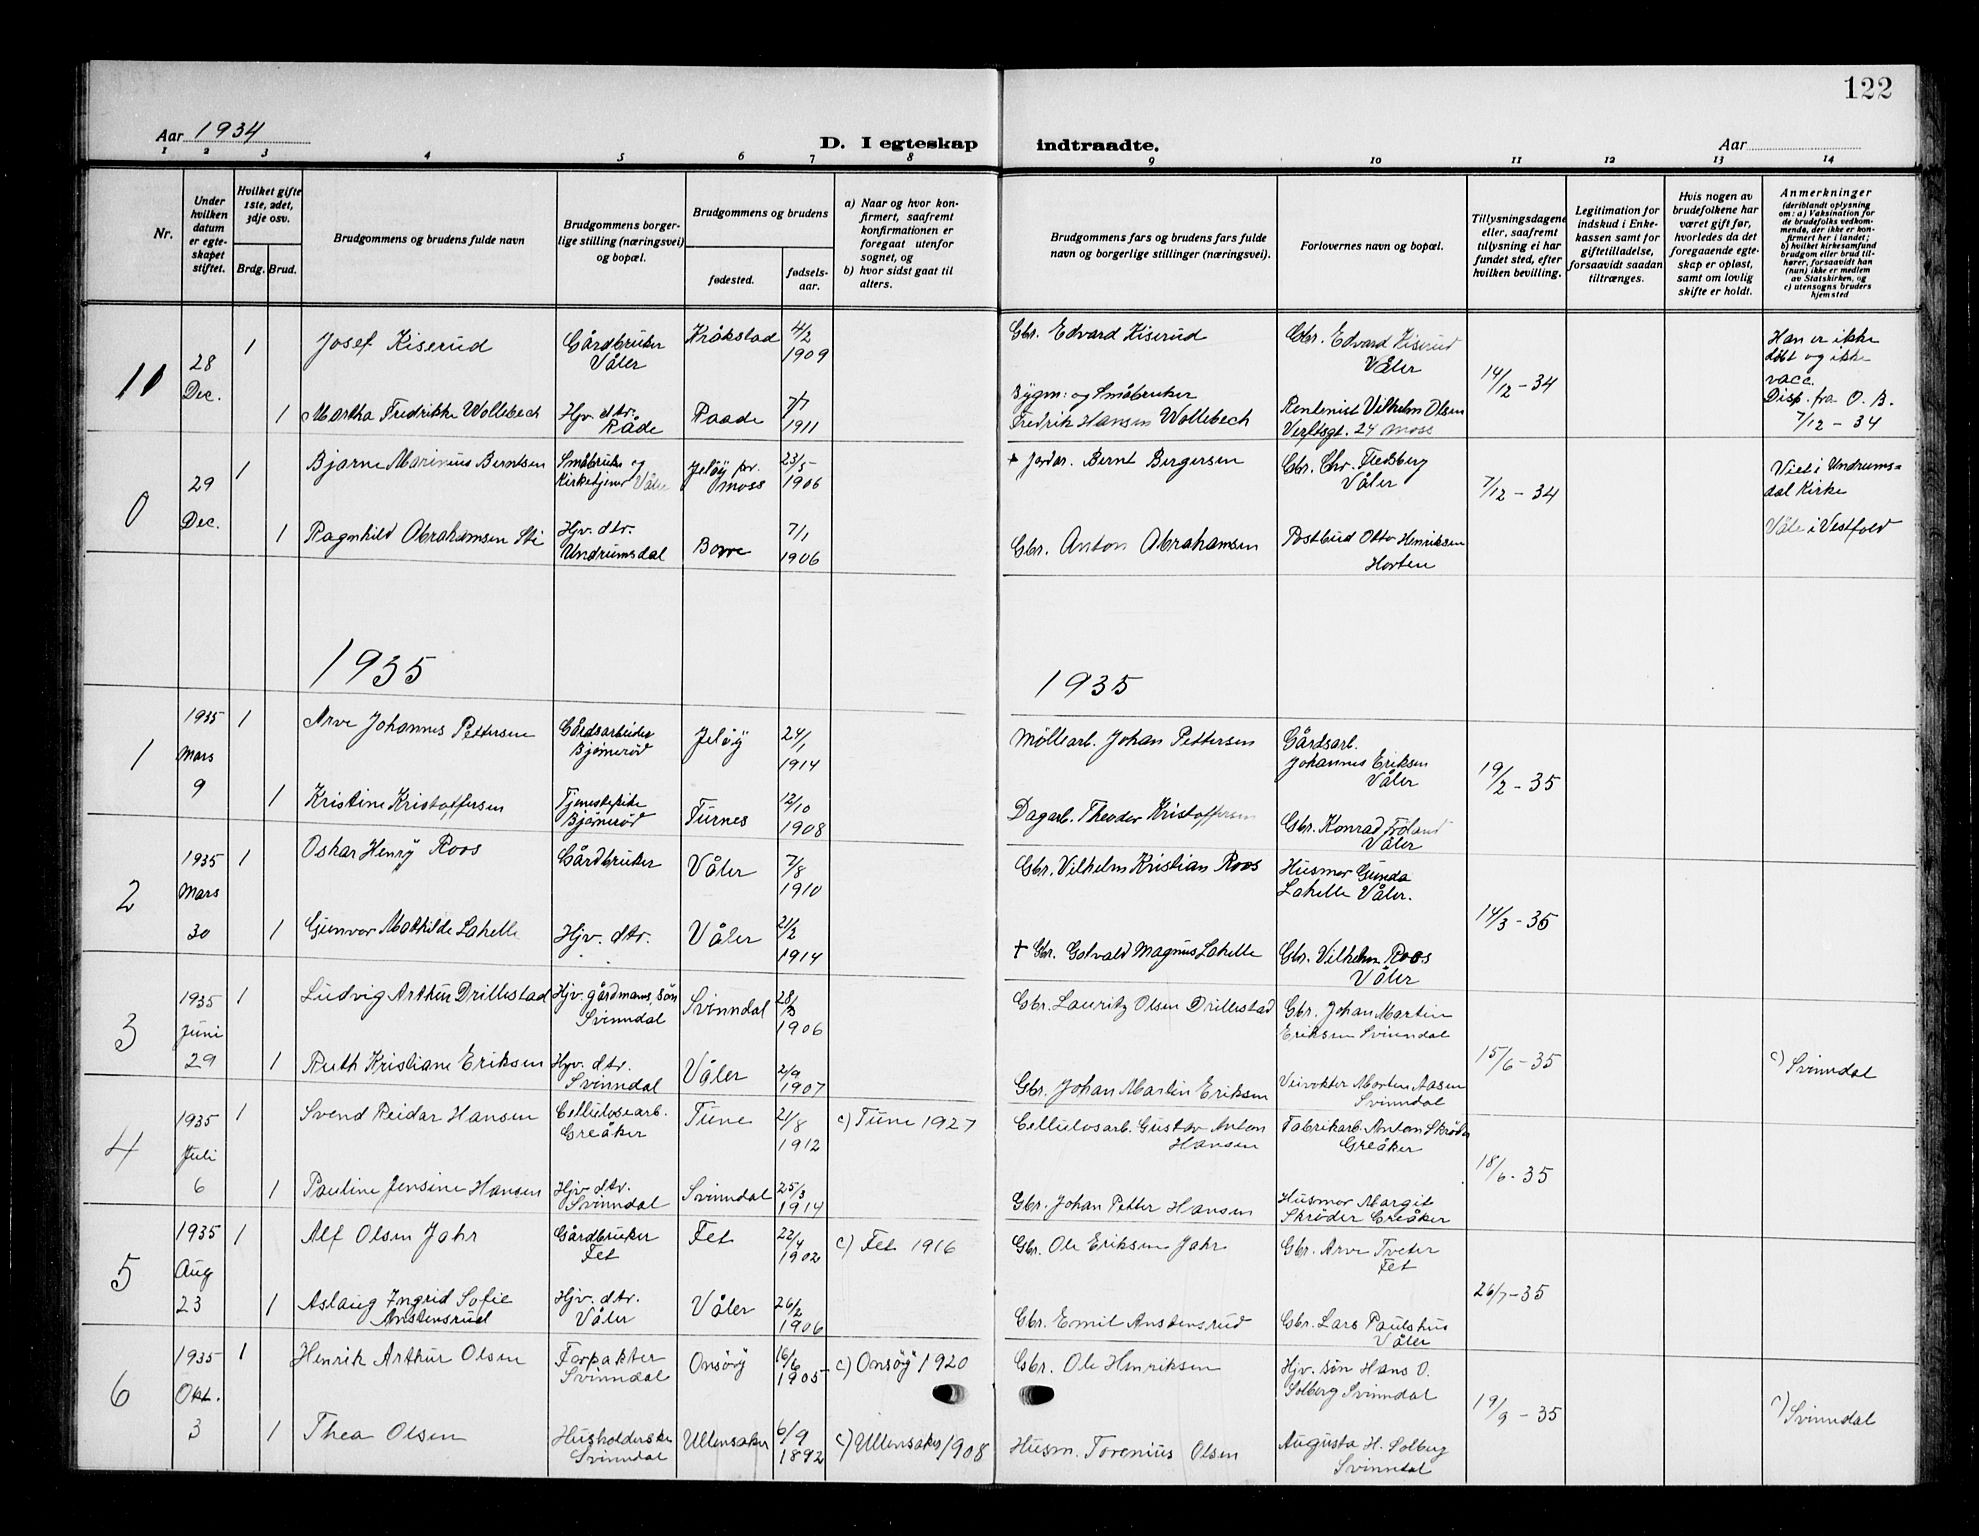 122
Aar 1934
D. I egteskap indtraadte.
Aar
1 2 3 4 5 6 7 8 9 10 11 12 13 14
Nr.
Under hvilken datum er egteskapet stiftet.
Hvilket gifte 1ste, 2det, 3dje osv.
Brdg. Brud.
Brudgommens og brudens fulde navn
Brudgommens borgerlige stilling (næringsvei) og bopæl.
Brudgommens og brudens
fødested.
fødselsaar.
a) Naar og hvor konfirmert, saafremt konfirmationen er foregaat utenfor sognet, og
b) hvor sidst gaat til alters.
Brudgommens fars og brudens fars fulde navn og borgerlige stillinger (næringsvei).
Forlovernes navn og bopæl.
Tillysningsdagene eller, saafremt tillysning ei har fundet sted, efter hvilken bevilling.
Legitimation for indskud i Enkekassen samt for giftetilladelse, forsaavidt saadan tiltrænges.
Hvis nogen av brudefolkene har været gift før, hvorledes da det foregaaende egteskap er opløst, samt om lovlig skifte er holdt.
Anmerkninger
(deriblandt oplysning om: a) Vaksination for de brudefolks vedkommende, der ikke er konfirmert her i landet; b) hvilket kirkesamfund brudgom eller brud tilhører, forsaavidt han (hun) ikke er medlem av Statskirken, og c) utensogns bruders hjemsted
28 Dec. 1 Josef Kiserud Gårdbruker Våler Kråkstad 4/2 1909 Gbr. Edvard Kiserud Gbr. Edvard Kiserud Våler 14/12-34 Han er ikke døbt og ikke vacc. Disp. fra O. B. 7/12-34
1 Martha Fredrikke Wollebech Hjv. dtr. Råde Raade 7/7 1911 Bygm: og Småbruker Fredrik Hansen Wollebech Rentenist Vilhelm Olsen Verftsgt. 24 Moss
0 29 Dec. 1 Bjarne Marinius Berntsen Småbruker og Kirketjener Våler Jeløy pr. Moss 23/5 1906 + Jordbr. Bernt Bergersen Gbr. Chr. Fledsberg Våler 7/12-34 Viet i Undrumsdal Kirke Våle i Vestfold
1 Ragnhild Abrahamsen Sti Hjv. dtr. Undrumsdal Borre 7/1 1906 Gbr. Anton Abrahamsen Postbud Otto Henriksen Horten
1935 1935
1 1935 Mars 9 1 Arve Johannes Pettersen Gårdsarbeider Bjørnerød Jeløy 24/1 1914 Møllearb. Johan Pettersen Gårdsarb. Johannes Eriksen Våler 19/2-35
1 Kristine Kristoffersen Tjenestepike Bjørnerød Furnes 12/10 1908 Dagarb. Theodor Kristoffersen Gbr. Konrad Frøland Våler
2 1935 Mars 30 1 Oskar Henry Roos Gårdbruker Våler 7/8 1910 Gbr. Vilhelm Kristian Roos Husmor Gunda Lakelle Våler. 14/3-35
1 Gunvor Mathilde Lakelle Hjv. dtr. Våler 21/2 1914 + Gbr. Gotvald Magnus Lakelle Gbr. Vilhelm Roos Våler
3 1935 Juni 29 1 Ludvig Arthur Drillestad Hjv. gårdmans. søn Svinndal Svinndal 28/3 1906 Gbr. Lauritz Olsen Drillestad Gbr. Johan Martin Eriksen Svinndal 15/6-35 c) Svinndal
1 Ruth Kristiane Eriksen Hjv. dtr. Svinndal Våler 2/9 1907 Gbr. Johan Martin Eriksen Veivokter Morten Aasen Svinndal
4 1935 Juli 6 1 Svend Reidar Hansen Cellulosearb. Greåker Tune 21/8 1912 c) Tune 1927 Cellulosarb. Gustav Anton Hansen Fabrikarb. Anton Skrøder Greåker 18/6-35
1 Pauline Jensine Hansen Hjv. dtr. Svinndal Svinndal 25/3 1914 Gbr. Johan Petter Hansen Husmor Margit Skrøder Greåker
5 1935 Aug 23 1 Alf Olsen Jahr Gårdbruker Fet Fet 22/4 1902 c) Fet 1916 Gbr. Ole Eriksen Jahr Gbr. Arve Tveter Fet 26/7-35
1 Aslaug Ingrid Sofie Anstensrud Hjv. dtr. Våler Våler 26/2 1906 Gbr. Emil Anstensrud Gbr. Lars Paulshus Våler
6 1935 Okt. 3 1 Henrik Arthur Olsen Forpakter Svinndal Onsøy 16/6 1905 c) Onsøy 1920 Gbr. Ole Henriksen Hjv. søn Hans O. Solberg Svinndal 19/9-35 c) Svinndal
1 Thea Olsen Husholderske Svinndal Ullensaker 6/9 1892 c) Ullensaker 1908 Husm. Torenius Olsen Augusta H. Solberg Svinndal